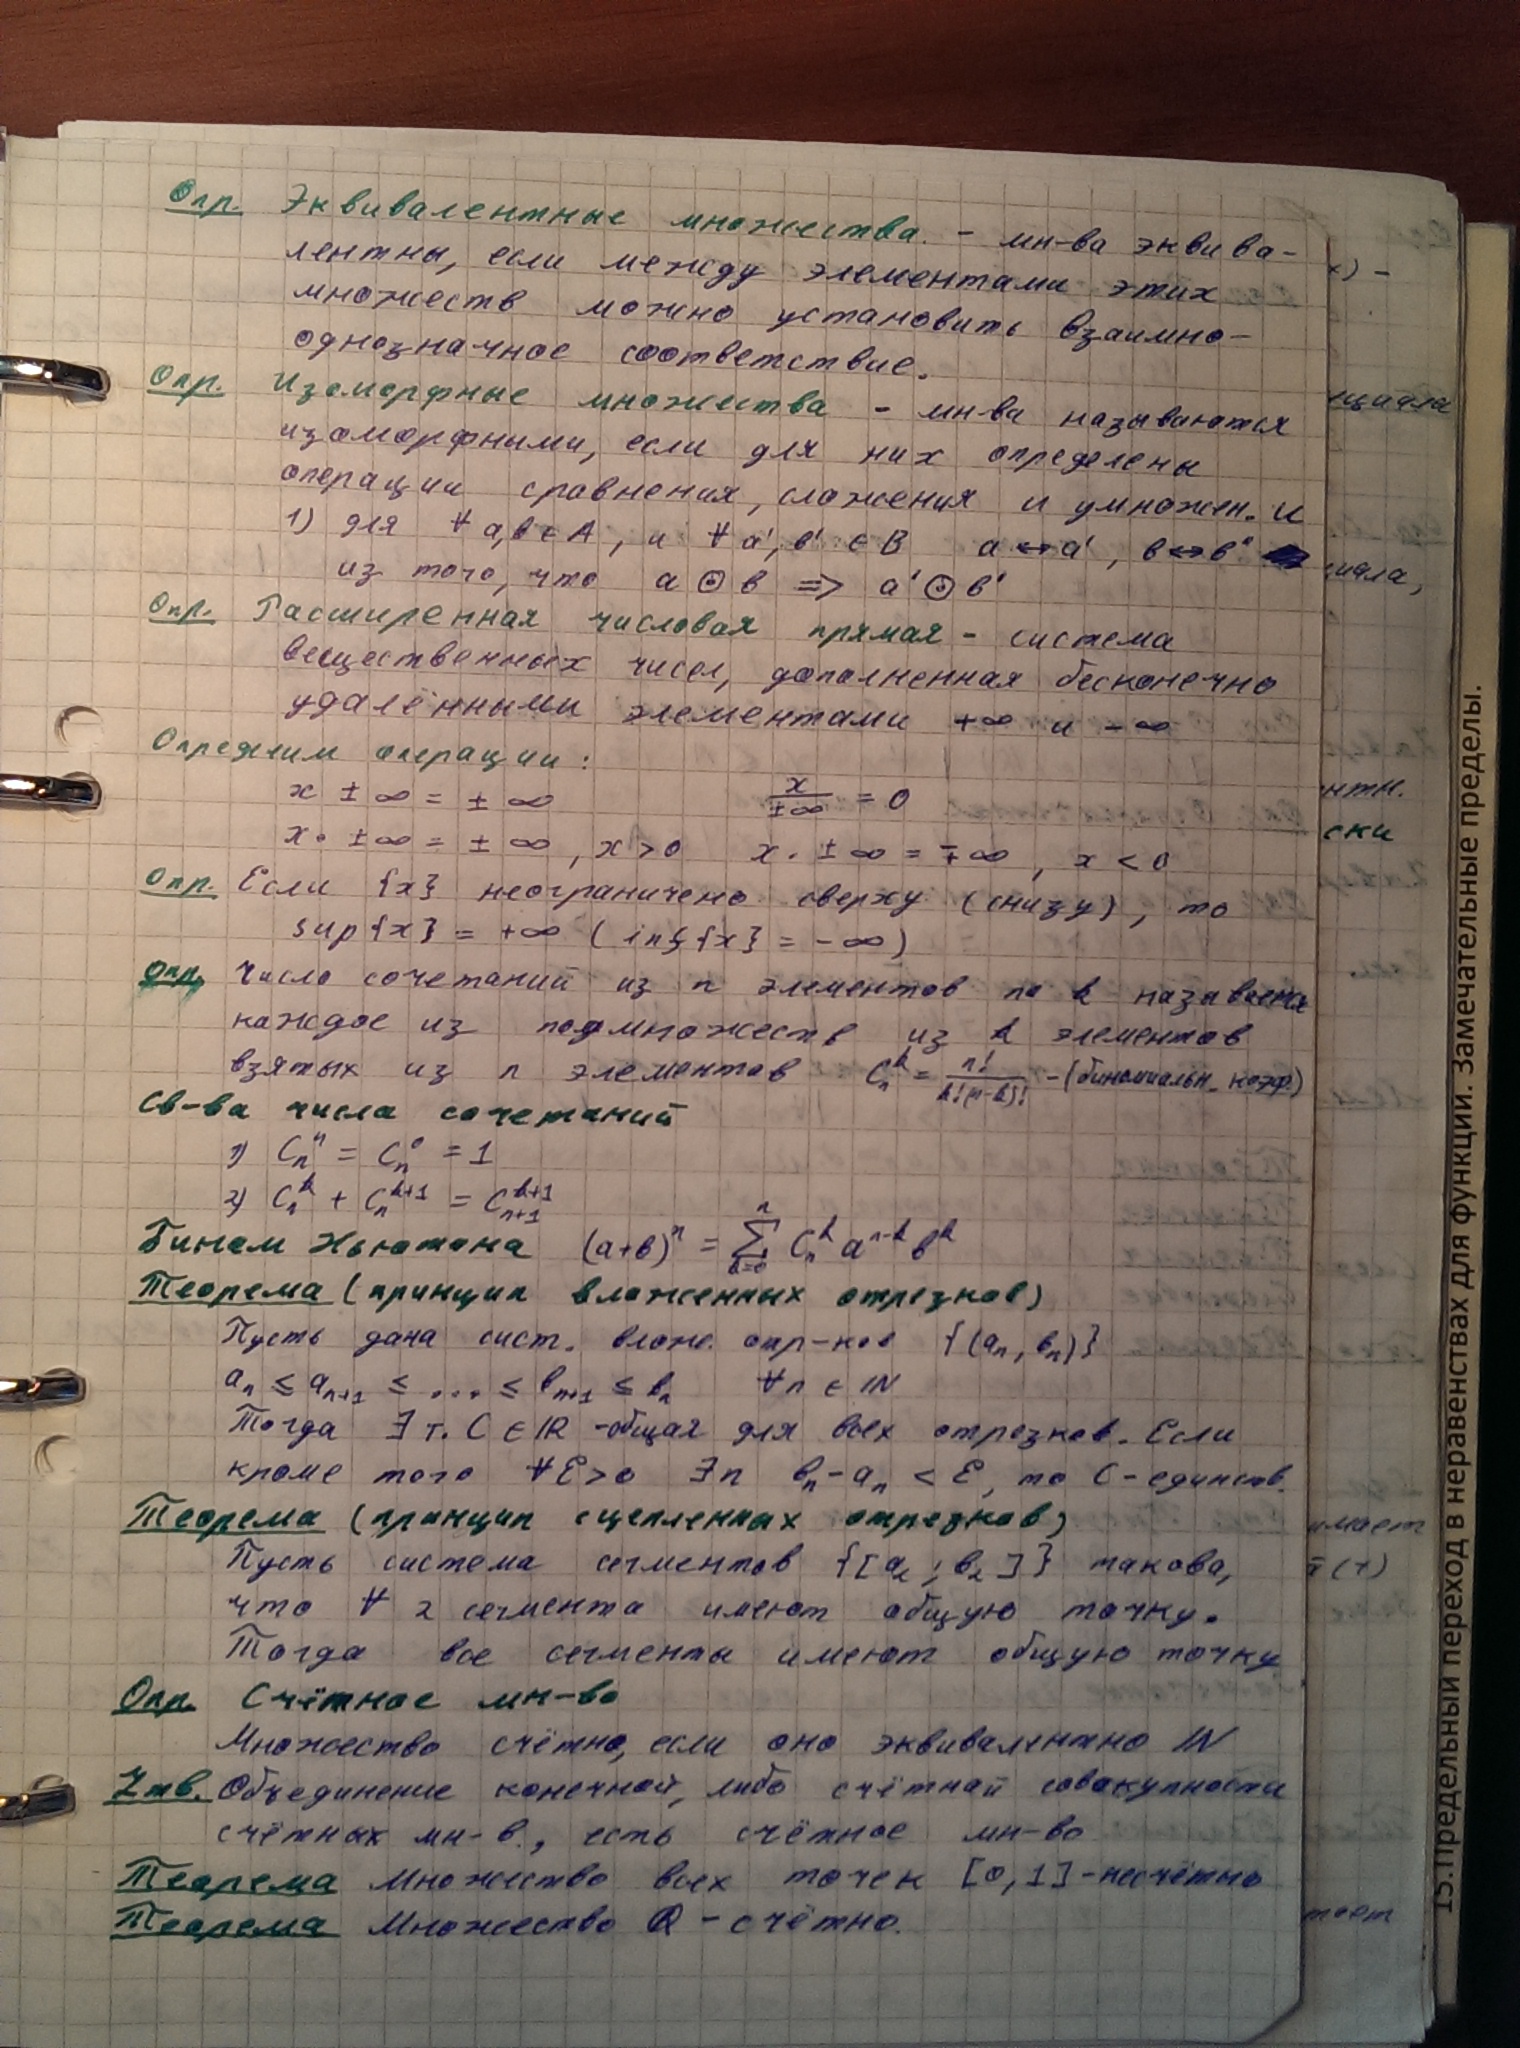 Опр. Эквивалентные множества. - мн-ва эквива-
лентны, если между элементами этих
множеств можно установить взаимно-
однозначное соответствие.
Опр. Изоморфные множества - мн-ва называются
изоморфными, если для них определены
операции сравнения, сложения и умножен. и
1) для ∀ a,b ∈ A, и ∀ a', b' ∈ B a ↔ a', b ↔ b'
из того, что a ⊙ b => a' ⊙ b'
Опр. Расширенная числовая прямая - система
вещественных чисел, дополненная бесконечно
удалёнными элементами +∞ и -∞
Определим операции:
x ± ∞ = ± ∞ x/±∞ = 0
x · ±∞ = ± ∞, x > 0 x · ±∞ = ∓∞, x < 0
Опр. Если {x} неограничено сверху (снизу), то
sup{x} = +∞ (inf{x} = -∞)
Опр. Число сочетаний из n элементов по k называется
каждое из подмножеств из k элементов
взятых из n элементов C_n^k = n!/k!(n-k)! - (биномиальн. коэф.)
Св-ва числа сочетаний
1) C_n^n = C_n^0 = 1
2) C_n^k + C_n^{k+1} = C_{n+1}^{k+1}
Бином Ньютона (a+b)^n = ∑_{k=0}^n C_n^k a^{n-k} b^k
Теорема (принцип вложенных отрезков)
Пусть дана сист. влож. отр-ков {(a_n, b_n)}
a_n ≤ a_{n+1} ≤ ... ≤ b_{n+1} ≤ b_n ∀n ∈ IN
Тогда ∃ т. C ∈ IR - общая для всех отрезков. Если
кроме того ∀ε>0 ∃n b_n - a_n < ε, то C - единств.
Теорема (принцип сцепленных отрезков)
Пусть система сегментов {[a_2; b_2]} такова,
что ∀ 2 сегмента имеют общую точку.
Тогда все сегменты имеют общую точку
Опр. Счётное мн-во
Множество счётно, если оно эквивалентно IN
Утв. Объединение конечной, либо счётной совокупности
счётных мн-в., есть счётное мн-во
Теорема Множество всех точек [0,1] - несчётно
Теорема Множество Q - счётно.
15.Предельный переход в неравенствах для функции. Замечательные пределы.